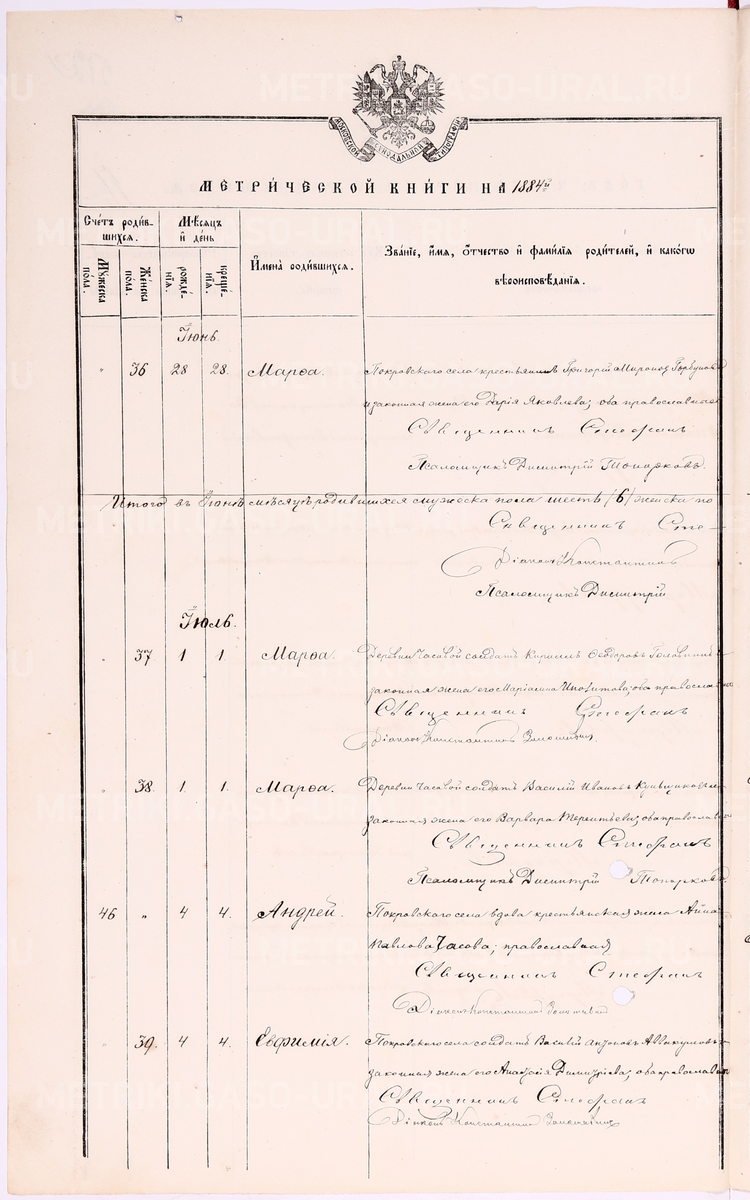 МОСКОВСКОЙ СУНОДАЛЬНОЙ ТИПОГРАФІИ
МЕТРИЧЕСКОЙ КНИГИ НА 1884й
Счетъ родив-
шихся.
Мѣсяцъ
и день
Имена родившихся.
Званіе, имя, отчество и фамилія родителей, и какогѡ
вѣроисповѣданія.
Мужеска
пола.
Женска
пола.
рожде-
нія.
креще-
нія.
Іюнь.
" 36 28 28. Марѳа. Покровскаго села крестьянинъ Григорій Мироновъ Горбуновъ
и законная жена его Дарія Яковлева; оба православные
Священникъ Стефанъ
Псаломщикъ Димитрій Топорковъ.
Итого въ Іюнѣ мѣсяцѣ родившихся мужеска пола шесть /6/ женска по
Священникъ Сте-
Діаконъ Константинъ
Псаломщикъ Димитрій
Іюль.
" 37 1 1. Марѳа. Деревни Часовой солдатъ Кириллъ Ѳеодоровъ
законная жена его Маріамна Ипполитова; оба православные
Священникъ Стефанъ
Діаконъ Константинъ
" 38. 1. 1. Марѳа. Деревни Часовой солдатъ Василій Ивановъ
законная жена его Варвара Терентьева; оба православные
Священникъ Стефанъ
Псаломщикъ Димитрій Топорковъ.
46 " 4 4. Андрей. Покровскаго села вдова крестьянская жена Анна
Павлова Часова; православная
Священникъ Стефанъ
Діаконъ Константинъ
" 39. 4 4. Евфимія. Покровскаго села солдатъ Василій Антоновъ Аввакумовъ
законная жена его Анастасія Димитріева; оба православные
Священникъ Стефанъ
Діаконъ Константинъ